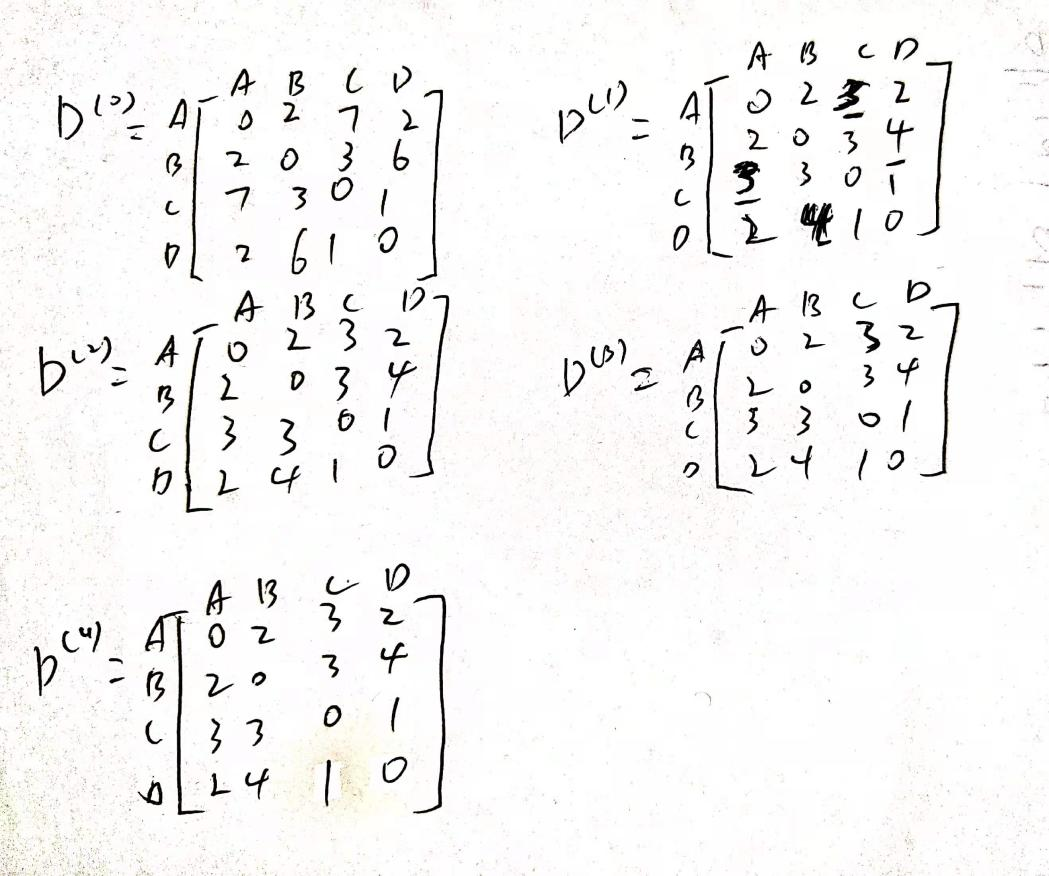 D(0) =
A B C D
A 0 2 7 2
B 2 0 3 6
C 7 3 0 1
D 2 6 1 0
D(1) =
A B C D
A 0 2 3 2
B 2 0 3 4
C 3 3 0 1
D 2 4 1 0
D(2) =
A B C D
A 0 2 3 2
B 2 0 3 4
C 3 3 0 1
D 2 4 1 0
D(3) =
A B C D
A 0 2 3 2
B 2 0 3 4
C 3 3 0 1
D 2 4 1 0
D(4) =
A B C D
A 0 2 3 2
B 2 0 3 4
C 3 3 0 1
D 2 4 1 0